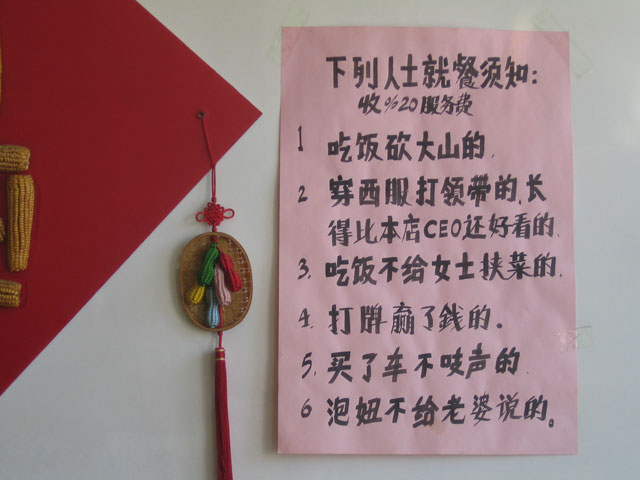 下列人士就餐须知：
收%20服务费
1 吃饭砍大山的.
2 穿西服打领带的,长
得比本店CEO还好看的.
3. 吃饭不给女士挟菜的.
4. 打牌赢了錢的。
5. 买了车不吱声的
6 泡妞不给老婆说的。